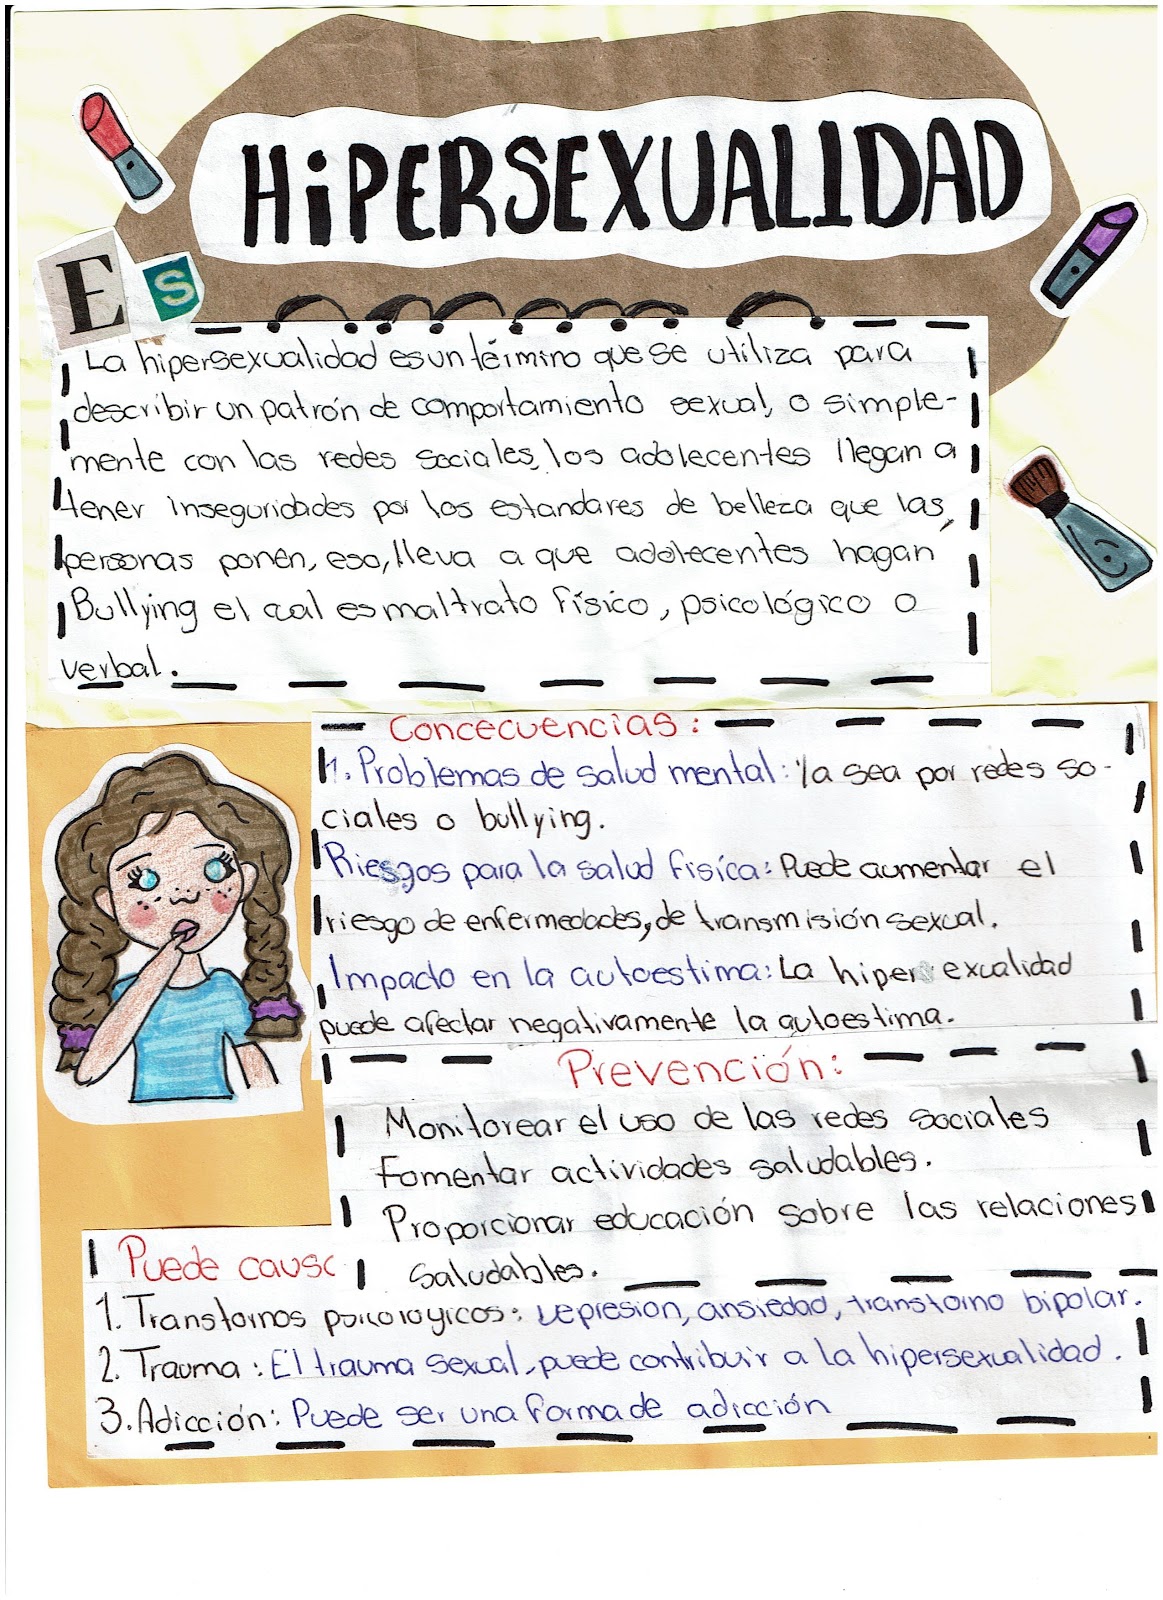 HiPERSEXUALIDAD
Es
La hipersexualidad es un término que se utiliza para
describir un patrón de comportamiento sexual, o simple-
mente con las redes sociales, los adolecentes llegan a
tener inseguridades por los estandares de belleza que las
personas ponen, eso, lleva a que adolecentes hagan
Bullying el cual es maltrato físico, psicológico o
verbal.
Concecuencias:
1. Problemas de salud mental: Ya sea por redes so-
ciales o bullying.
Riesgos para la salud física: Puede aumentar el
riesgo de enfermedades, de transmisión sexual.
Impacto en la autoestima: La hiper exualidad
puede afectar negativamente la autoestima.
Prevención:
Monitorear el uso de las redes sociales
Fomentar actividades saludables.
Proporcionar educación sobre las relaciones
saludables.
Puede causa
1. Transtornos psicologicos: Depresion, ansiedad, transtorno bipolar.
2. Trauma: El trauma sexual, puede contribuir a la hipersexualidad.
3. Adicción: Puede ser una forma de adicción